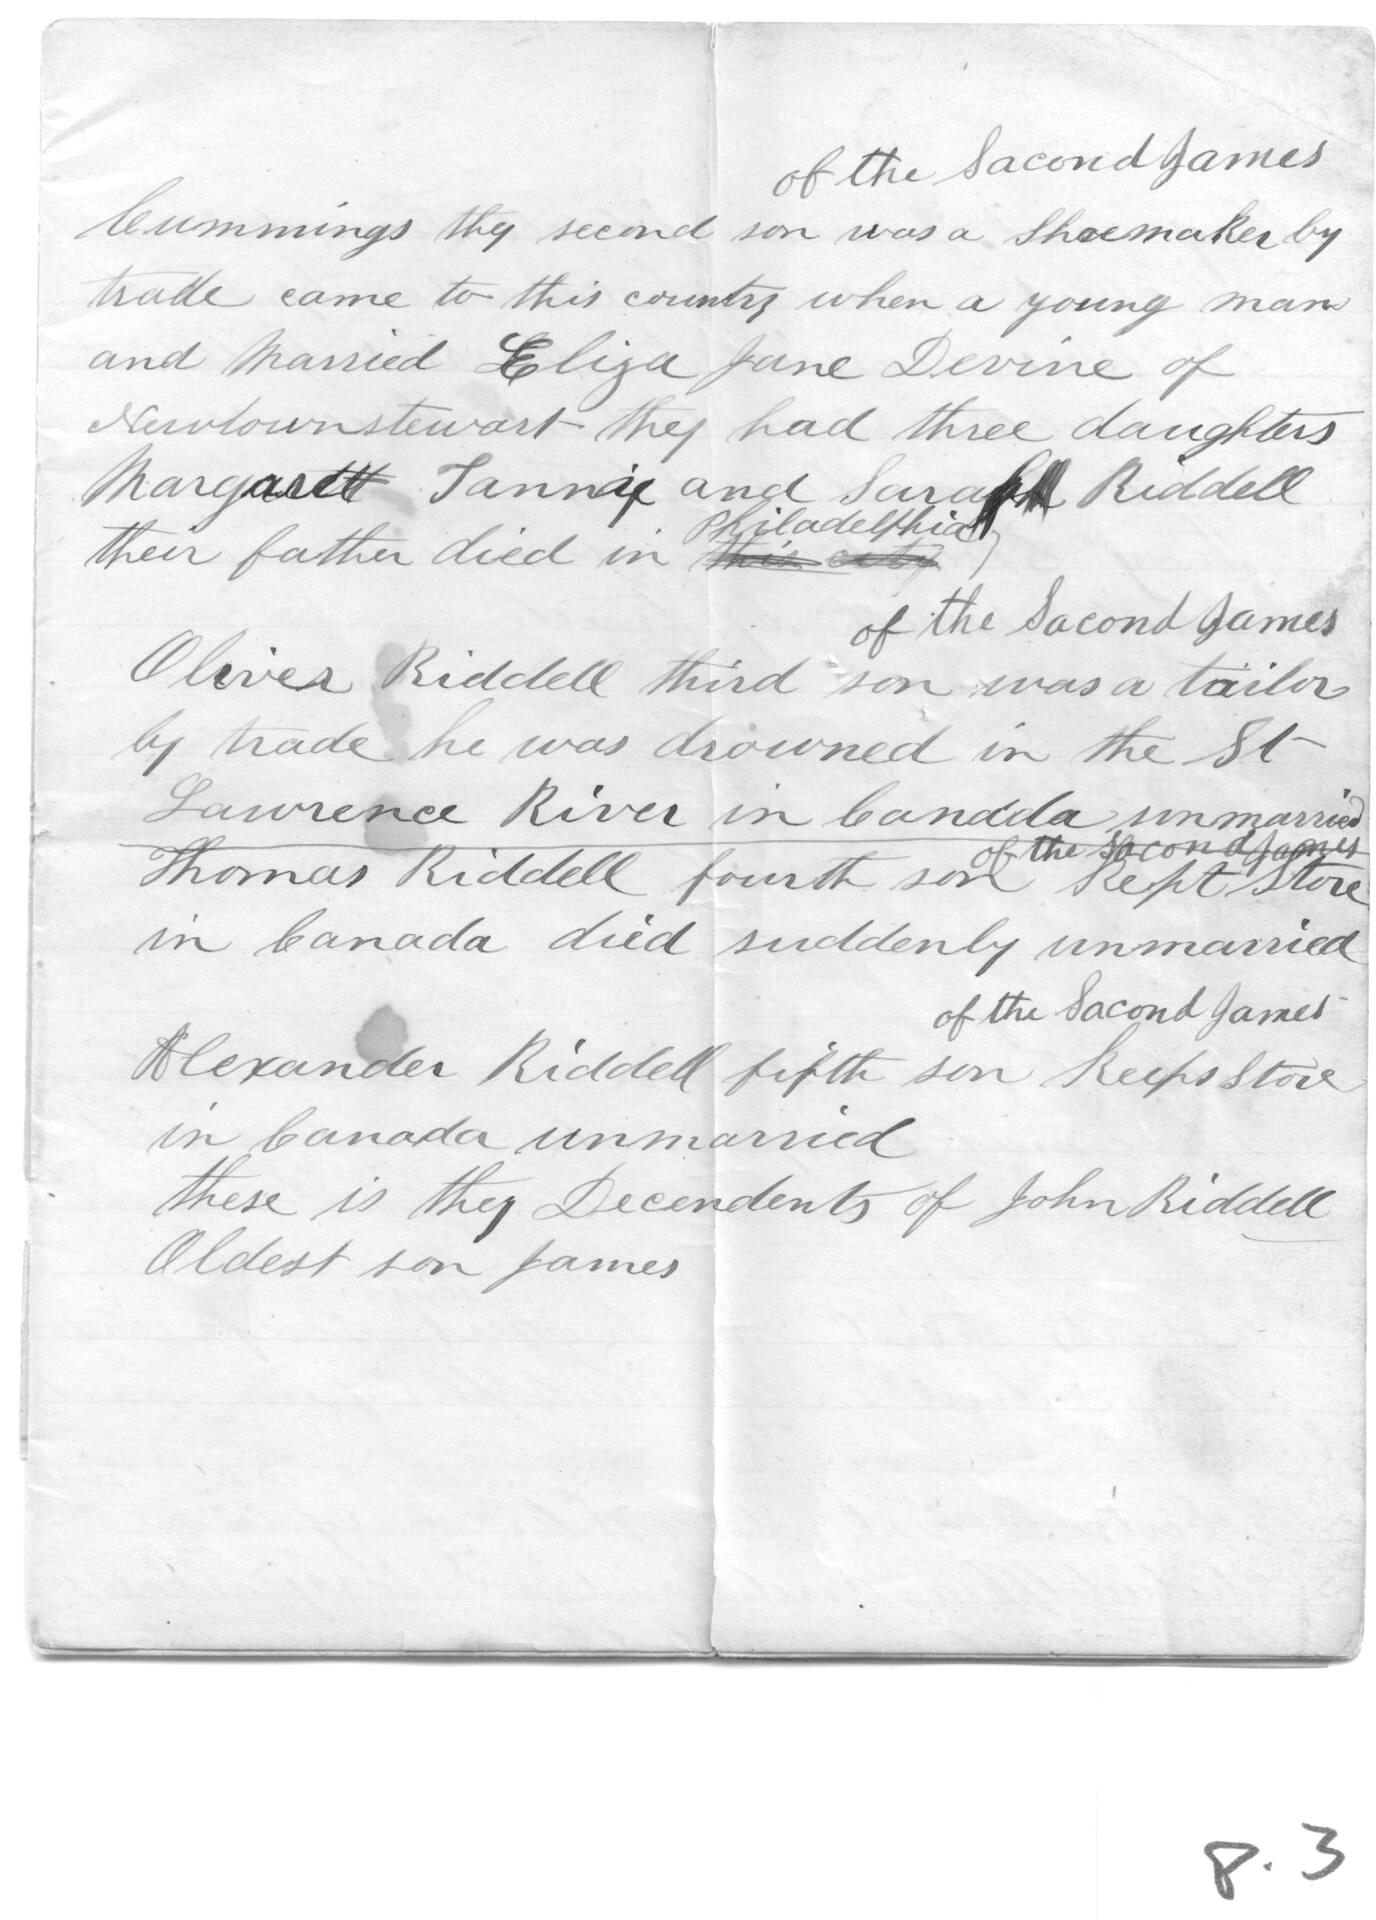 of the Sacond James
Cummings they second son was a Shoemaker by
trade came to this country when a young man
and Married Eliza Jane Devine of
Newtownstewart they had three daughters
Margarett Fannie and Sarah Riddell
Philadelphia
their father died in this city
of the Sacond James
Oliver Riddell third son was a tailor
by trade he was drowned in the St
Lawrence River in Canada unmarried
of the Sacond James
Thomas Riddell fourth son Kept Store
in Canada died suddenly unmarried
of the Sacond James
Alexander Riddell fifth son Keeps Store
in Canada unmarried
these is they Decendents of John Riddell
Oldest son James
p. 3